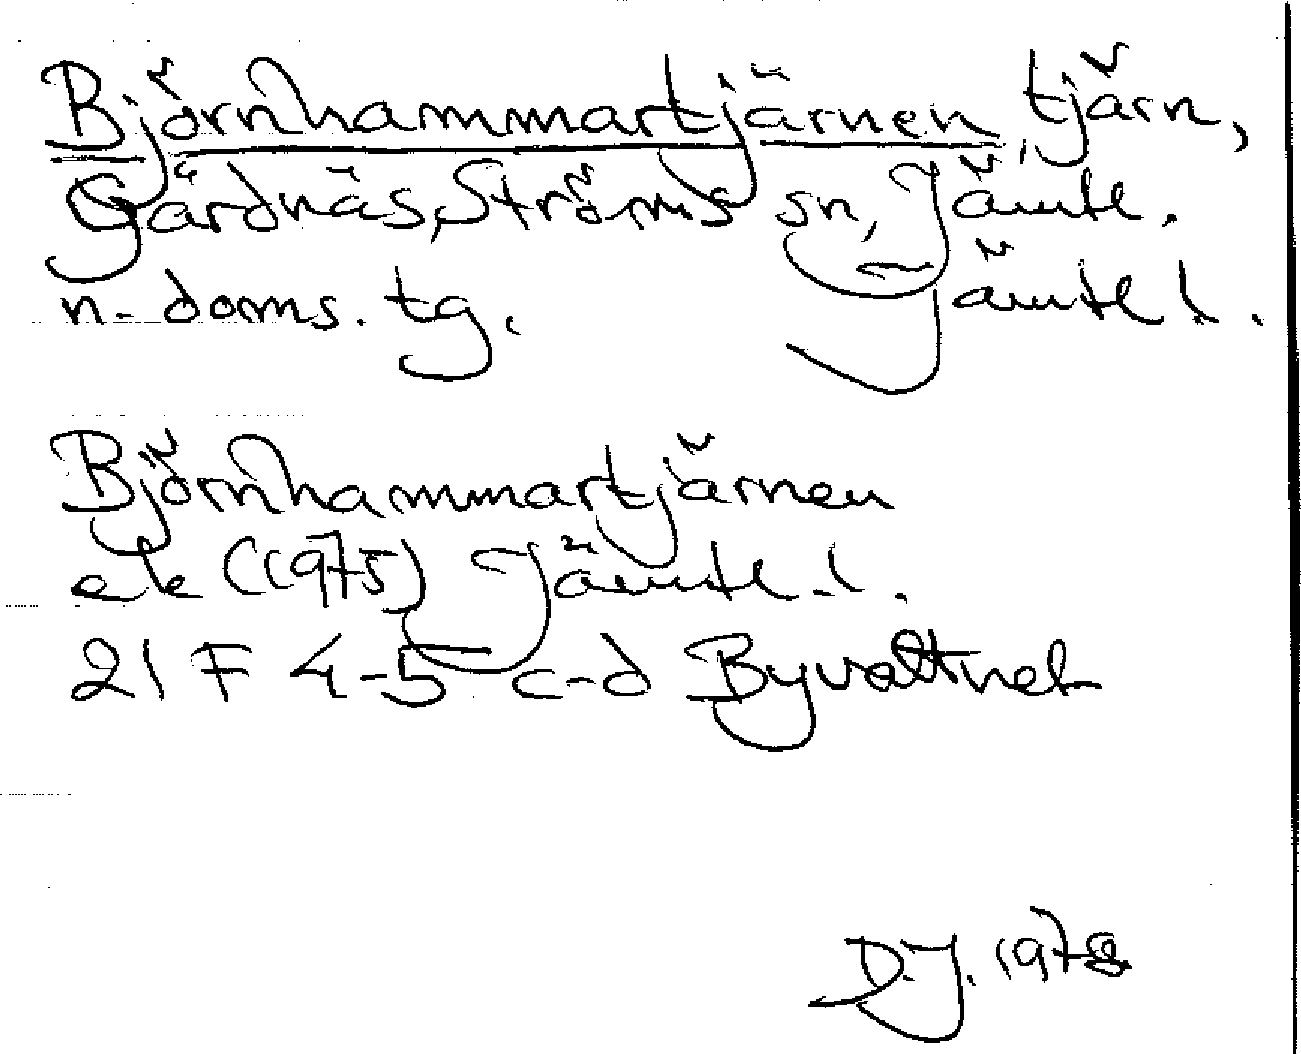 Björnhammartjärnen, tjärn,
Gärdnäs, Ströms sn, Jämtl.
n. doms. tg. Jämtl l.
Björnhammartjärnen
ek (1975) Jämtl. l.
21 F 4-5 c-d Byvattnet
D.J. 1978